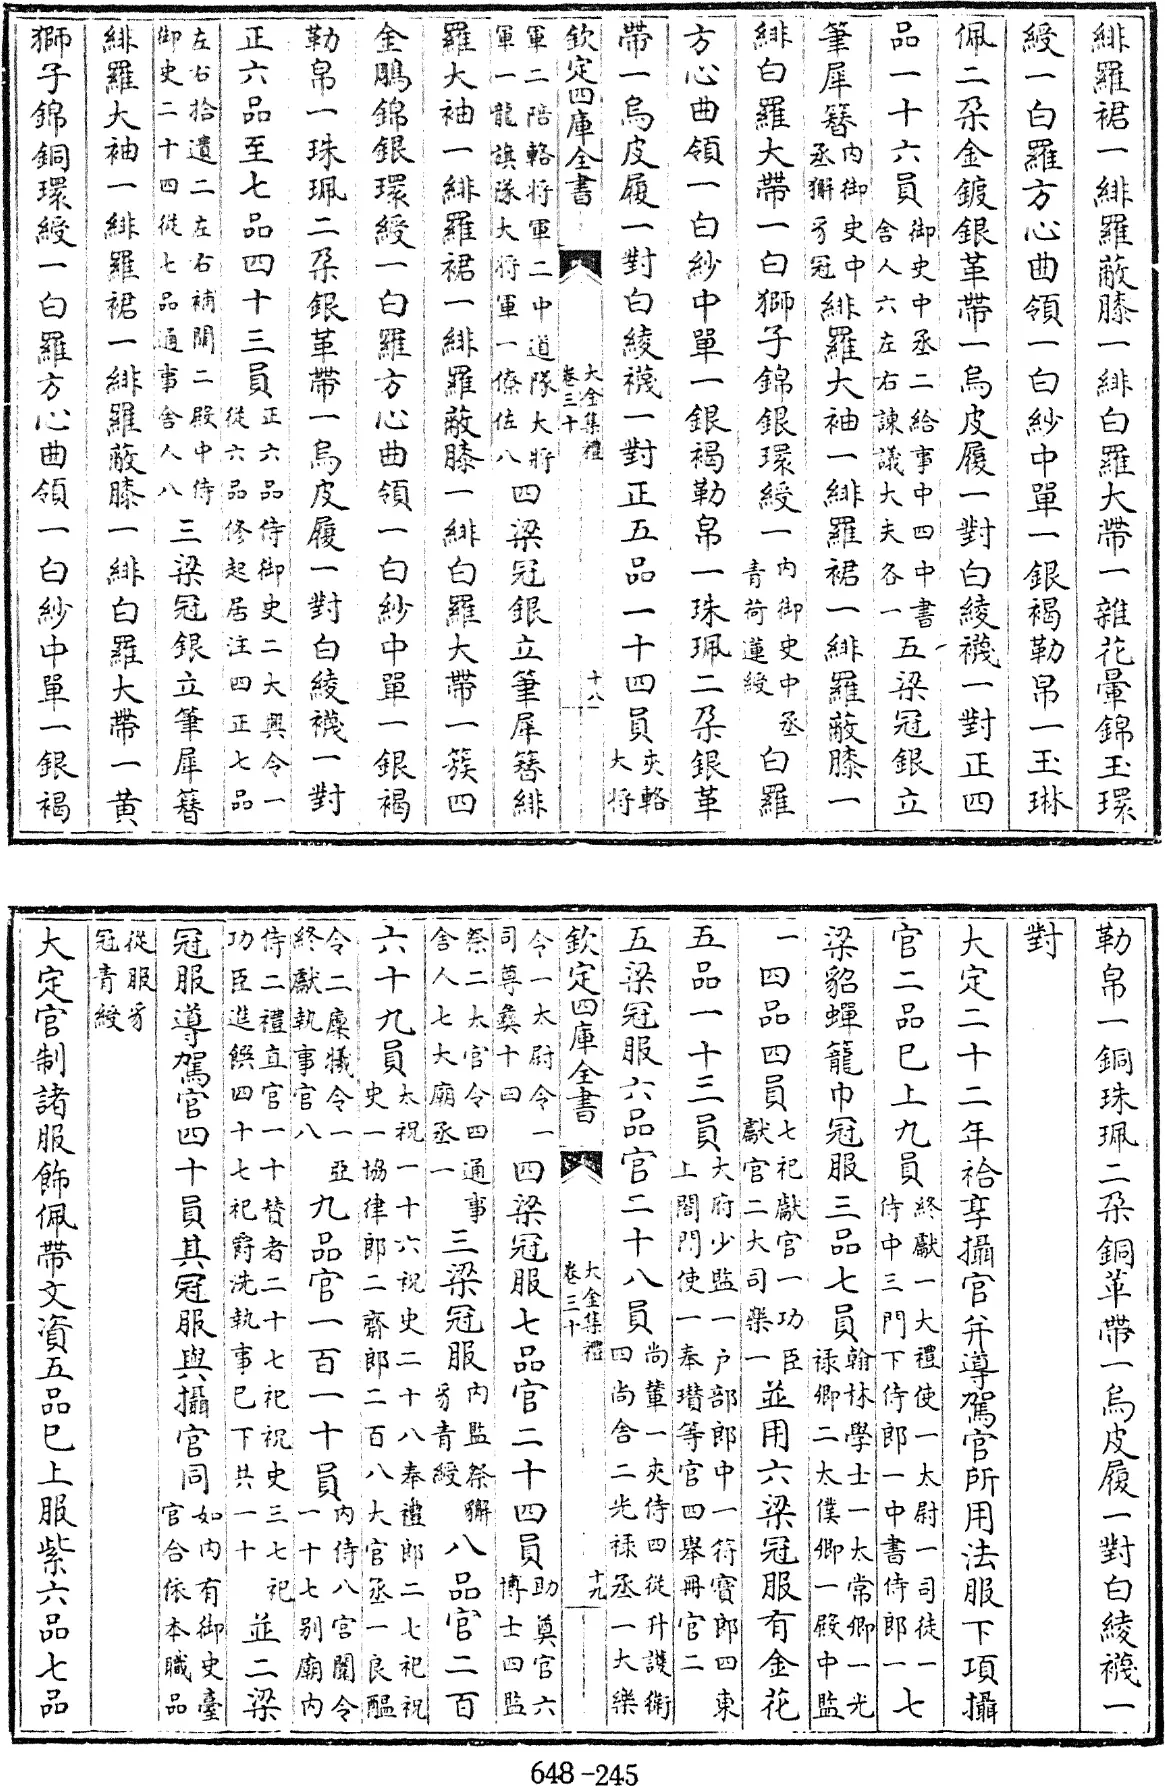 緋羅裙一緋羅蔽膝一緋白羅大帶一雜花暈錦玉環
綬一白羅方心曲領一白紗中單一銀褐勒帛一玉珠
佩二朶金鍍銀革帶一烏皮履一對白綾襪一對正四
品一十六員御史中丞二給事中四中書舍人六左右諫議大夫各一五梁冠銀立
筆犀簪內御史中丞獬豸冠緋羅大袖一緋羅裙一緋羅蔽膝一
緋白羅大帶一白獅子錦銀環綬一內御史中丞青荷蓮綬白羅
方心曲領一白紗中單一銀褐勒帛一珠珮二朶銀革
帶一烏皮履一對白綾襪一對正五品一十四員夾輅大將
欽定四庫全書 大金集禮卷三十 十八
軍二陪輅將軍二中道隊大將軍一龍旗隊大將軍一僚佐八四梁冠銀立筆犀簪緋
羅大袖一緋羅裙一緋羅蔽膝一緋白羅大帶一簇四
金鵰錦銀環綬一白羅方心曲領一白紗中單一銀褐
勒帛一珠珮二朶銀革帶一烏皮履一對白綾襪一對
正六品至七品四十三員正六品侍御史二大興令一從六品修起居注四正七品
左右拾遺二左右補闕二殿中侍御史二十四從七品通事舍人八三梁冠銀立筆犀簪
緋羅大袖一緋羅裙一緋羅蔽膝一緋白羅大帶一黃
獅子錦銅環綬一白羅方心曲領一白紗中單一銀褐
勒帛一銅珠珮二朶銅革帶一烏皮履一對白綾襪一
對
大定二十二年祫享攝官并導駕官所用法服下項攝
官二品巳上九員終獻一大禮使一太尉一司徒一侍中三門下侍郎一中書侍郎一七
梁貂蟬籠巾冠服三品七員翰林學士一太常卿一光祿卿二太僕卿一殿中監
一四品四員七祀獻官一功臣獻官二大司樂一並用六梁冠服有金花
五品一十三員大府少監一户部郎中一符寶郎四東上閤門使一奉瓚等官四舉冊官二
五梁冠服六品官二十八員尚輦一夾侍四從升護衛四尚舍二光祿丞一大樂
欽定四庫全書 大金集禮卷三十 十九
令一太尉令一司尊彝十四四梁冠服七品官二十四員助奠官六博士四監
祭二太官令四通事舍人七大廟丞一三梁冠服內監祭獬豸青綬八品官二百
六十九員太祝一十六祝史二十八奉禮郎二七祀祝史一協律郎二齋郎二百八大官丞一良醖
令二廩犧令一亞終獻執事官八九品官一百一十員內侍八宮闈令一十七别廟內
侍二禮直官一十贊者二十七祀祝史三七祀功臣進饌四十七祀爵洗執事巳下共一十並二梁
冠服導駕官四十員其冠服與攝官同如內有御史臺官合依本職品
從服豸冠青綬
大定官制諸服飾佩帶文資五品巳上服紫六品七品
648-245